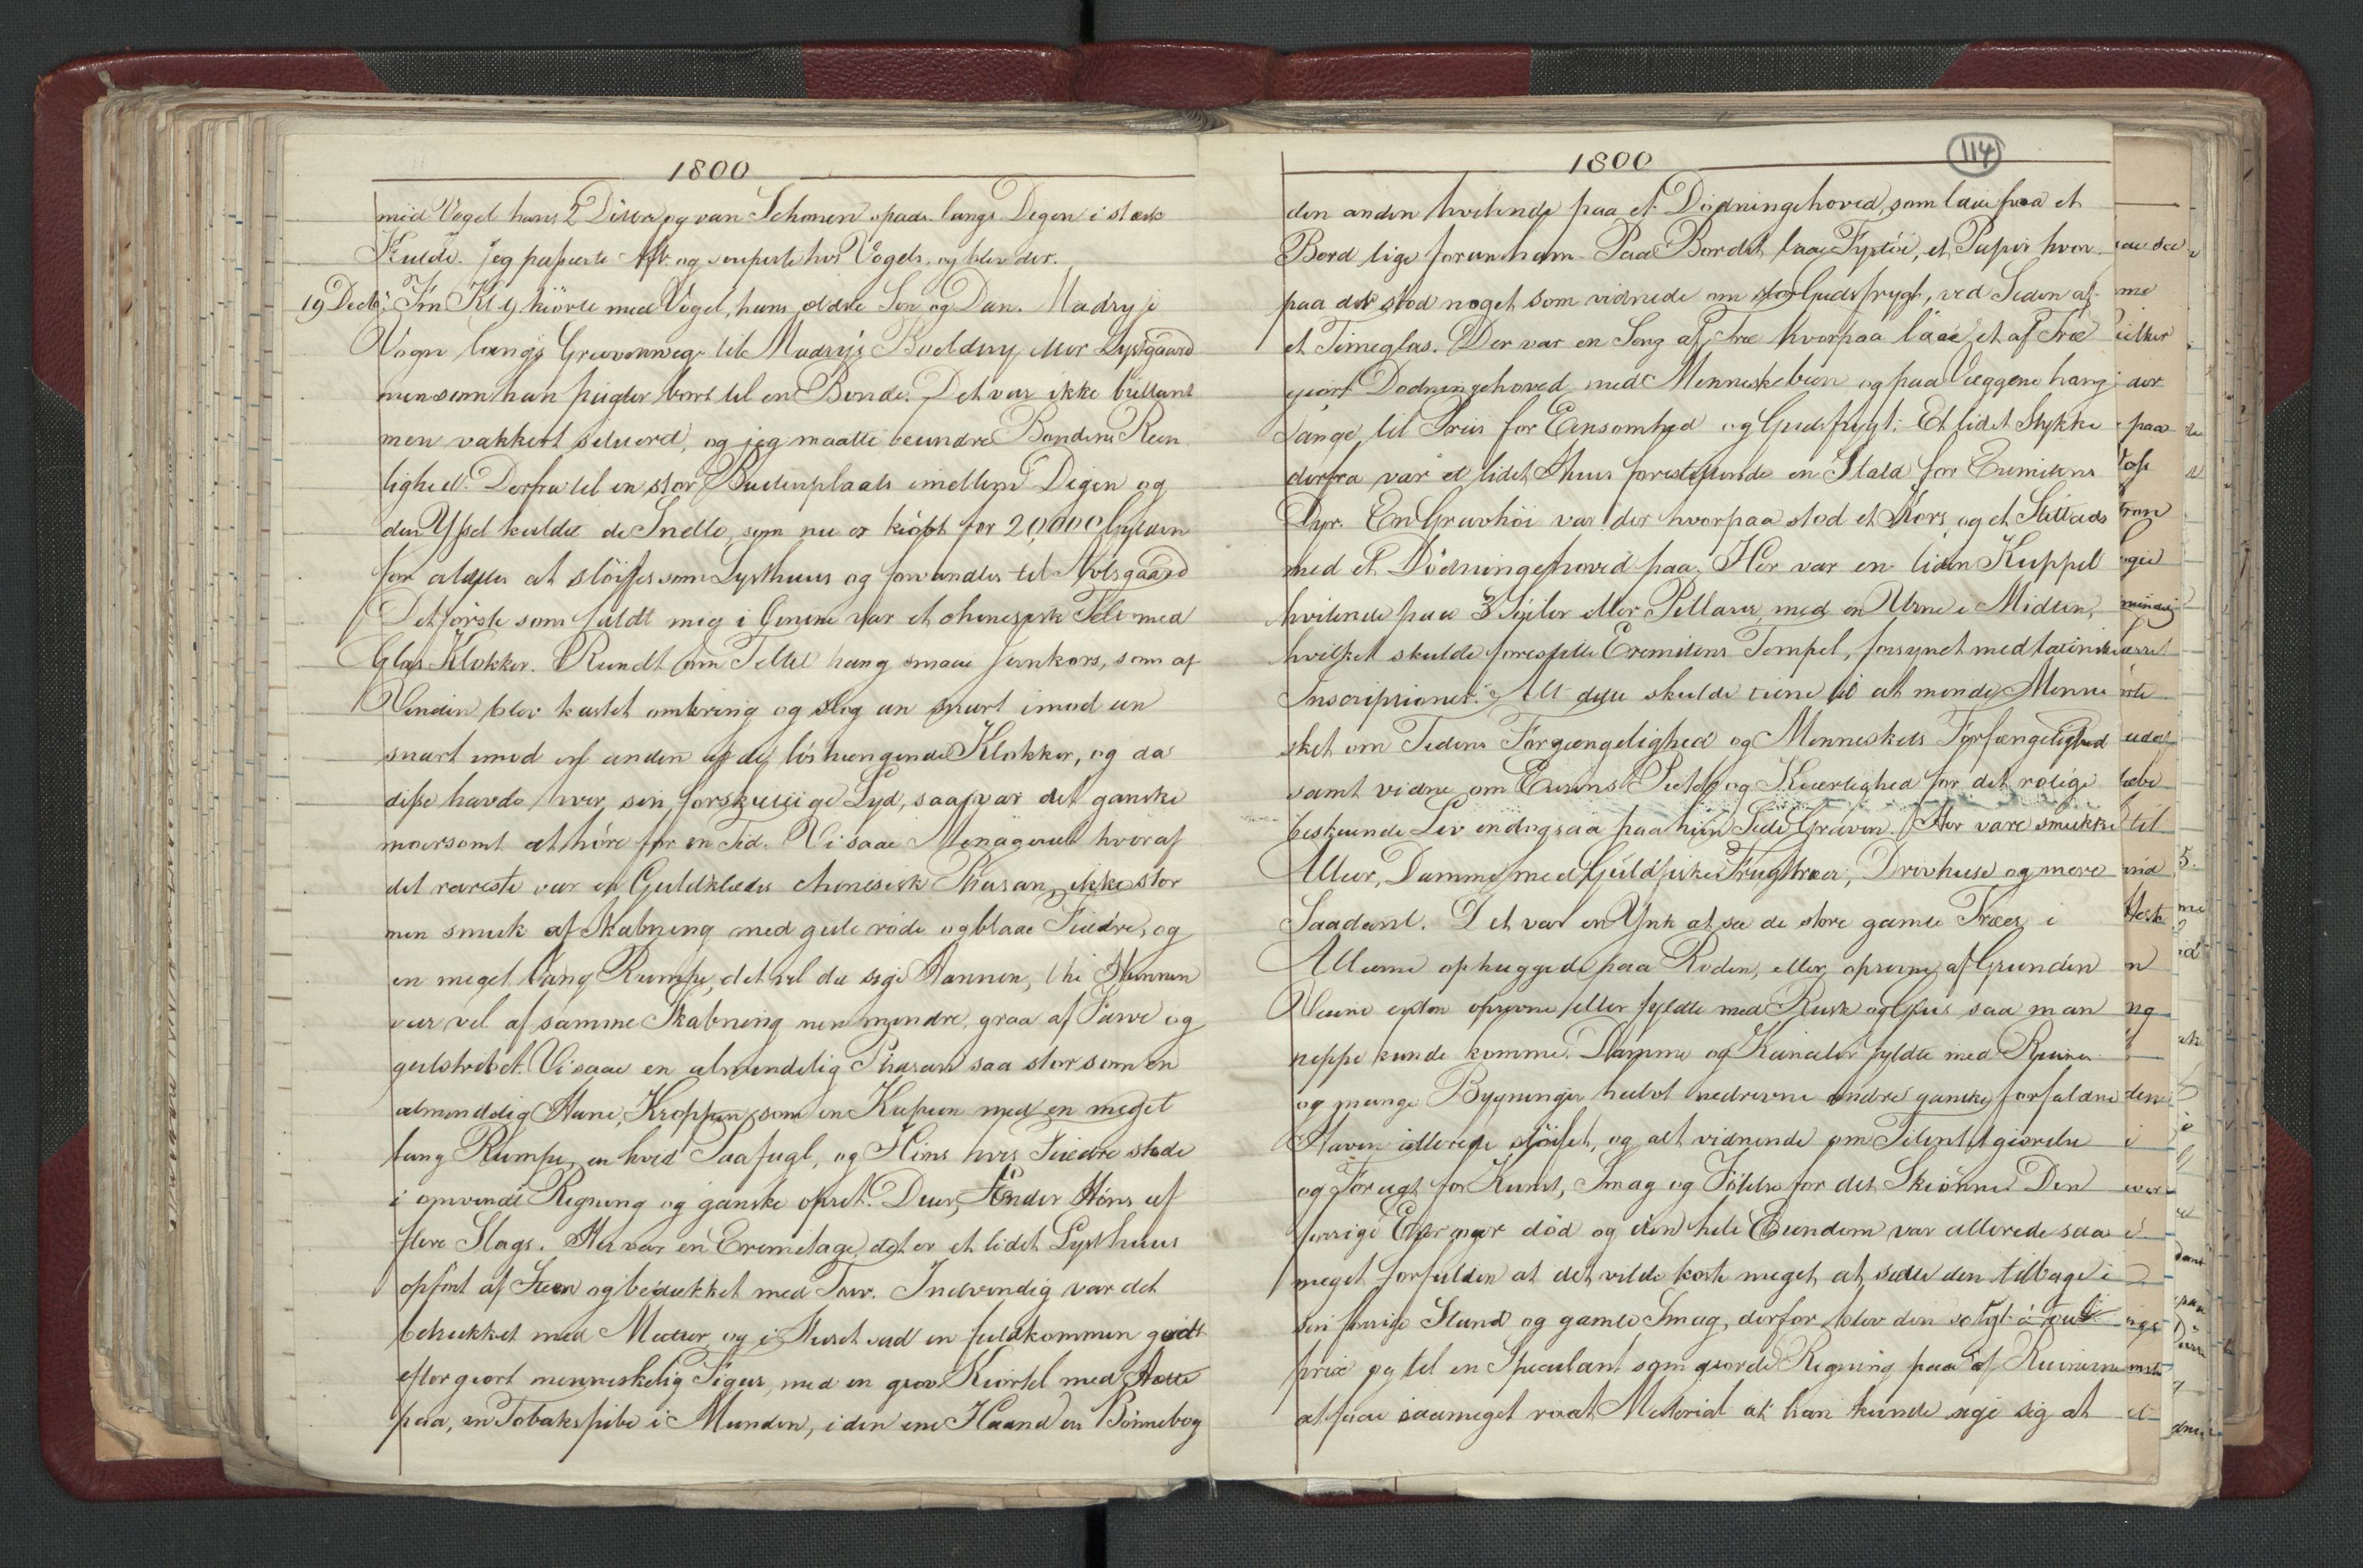 1800
med Vogel hans 2 Döttre og van Schonen spads. langs Degen i stærk
Kulde. Jeg passerte Aft. og souperte hos Vogels, og blev der.
19 Decbr. Fm Kl 9 kiörte med Vogel, hans ældre Sön og Dan. Madry i
Vogn langs Gravenwege til Madrys Boeldry eller Lystgaard
men som han forpagter bort til en Bonde. Det var ikke brillant
men vakkert situerd, og jeg maatte beundre Bondens Reen
lighed. Derfra til en stor Buitenplaats imellem Degen og
den Yssel kaldet de Snelle, som nu er kiöbt for 20,000 Gylden
for aldeles at slöifes som Lysthuus og forvandles til Avlsgaard
Det förste som faldt mig i Öinene var et chinesisk Telt med
Glas Klokker. Rundt om Teltet hang smaae Jernkors, som af
Vinden blev kastet omkring og slog an snart imod en
snart imod en anden af de löshængende Klokker, og da
disse havde hver sin forskiellige Lyd, saa var det ganske
moersomt at höre for en Tid. Vi saae Menageriet hvoraf
det rareste var en Guldklædes chinesisk Phasan, ikke stor
men smuk af Skabning med gule röde og blaae Fiædre, og
en meget lang Rumpe, det vil da sige Hannen, thi Hunnen
var vel af samme Skabning men mindre, graa af Farve og
gulstribet. Vi saae en almindelig Phasan saa stor som en
almindelig Hane, Kroppen som en Kapun med en meget
lang Rumpe, en hvid Paafugl, og Höns hvis Fiædre stode
i omvendt Regning og ganske opret. Duer, Ænder Höns af
flere Slags. Her var en Eremitage, det er et lidet Lysthuus
opfört af Steen og bedækket med Torv. Indvendig var det
betrækket med Matter og i Huset sad en fuldkommen godt
eftergiort menneskelig Figur, med en grov Kiortel med Hætte
paa, en Tobakspibe i Munden, i den ene Haand en Bönnebog
1800
114
den anden hvilende paa et Dödningehoved, som laae paa et
Bord lige foran ham. Paa Bordet laae Fyrtöi, et Papir hvor
paa der stod noget som vidnede om stor Gudsfrygt, ved Siden af
et Timeglas. Der var en Seng af Træ hvorpaa laae et af Træ
giort Dödningehoved med Menneskebeen og paa Væggene hang
Sange til Priis for Eensomhed og Gudsfrygt. Et lidet Stykke
derfra var et lidet Huus forestillende en Stald for Eremitens
Dyr. En Gravhöi var der hvorpaa stod et Kors og et Stillads
med et Dödningehoved paa. Her var en liden Kuppel
hvilende paa 3 Söiler eller Pillarer, med en Urne i Midten,
hvilket skulde forestille Eremitens Tempel, forsynet med latinske
Inscriptioner. Alt dette skulde tiene til at minde Menne
sket om Tidens Forgængelighed og Menneskets Forfængelighed
samt vidne om Eierens Pietet og Kiærlighed for det rolige
beskuende Liv endogsaa paa hiin Side Graven. Her vare smukke
Alleer, Damme med Guldfiske, Frugttræer, Drivhuse og mere
Saadant. Det var en Ynk at see de store gamle Træer i
Alleerne ophuggede paa Roden, eller oprevne af Grunden
Veiene enten oprevne eller fyldte med Rusk og Gruus saa man
neppe kunde komme. Damme og Kanaler fyldte med Ruiner
og mange Bygninger halvt nedrevne andre ganske forfaldne
Haven allerede slöifet, og alt vidnende om Tilintetgiorelse
og Foragt for Kunst, Smag og Fölelse for det Skiönne. Den
forrige Eier var död og den hele Eiendom var allerede saa
meget forfalden at det vilde koste meget at sætte den tilbage i
sin forrige Stand og gamle Smag, derfor blev den solgt à tout
prix og til en Speculant som giorde Regning paa af Ruinerne
at faae saameget raat Material at han kunde sige sig at